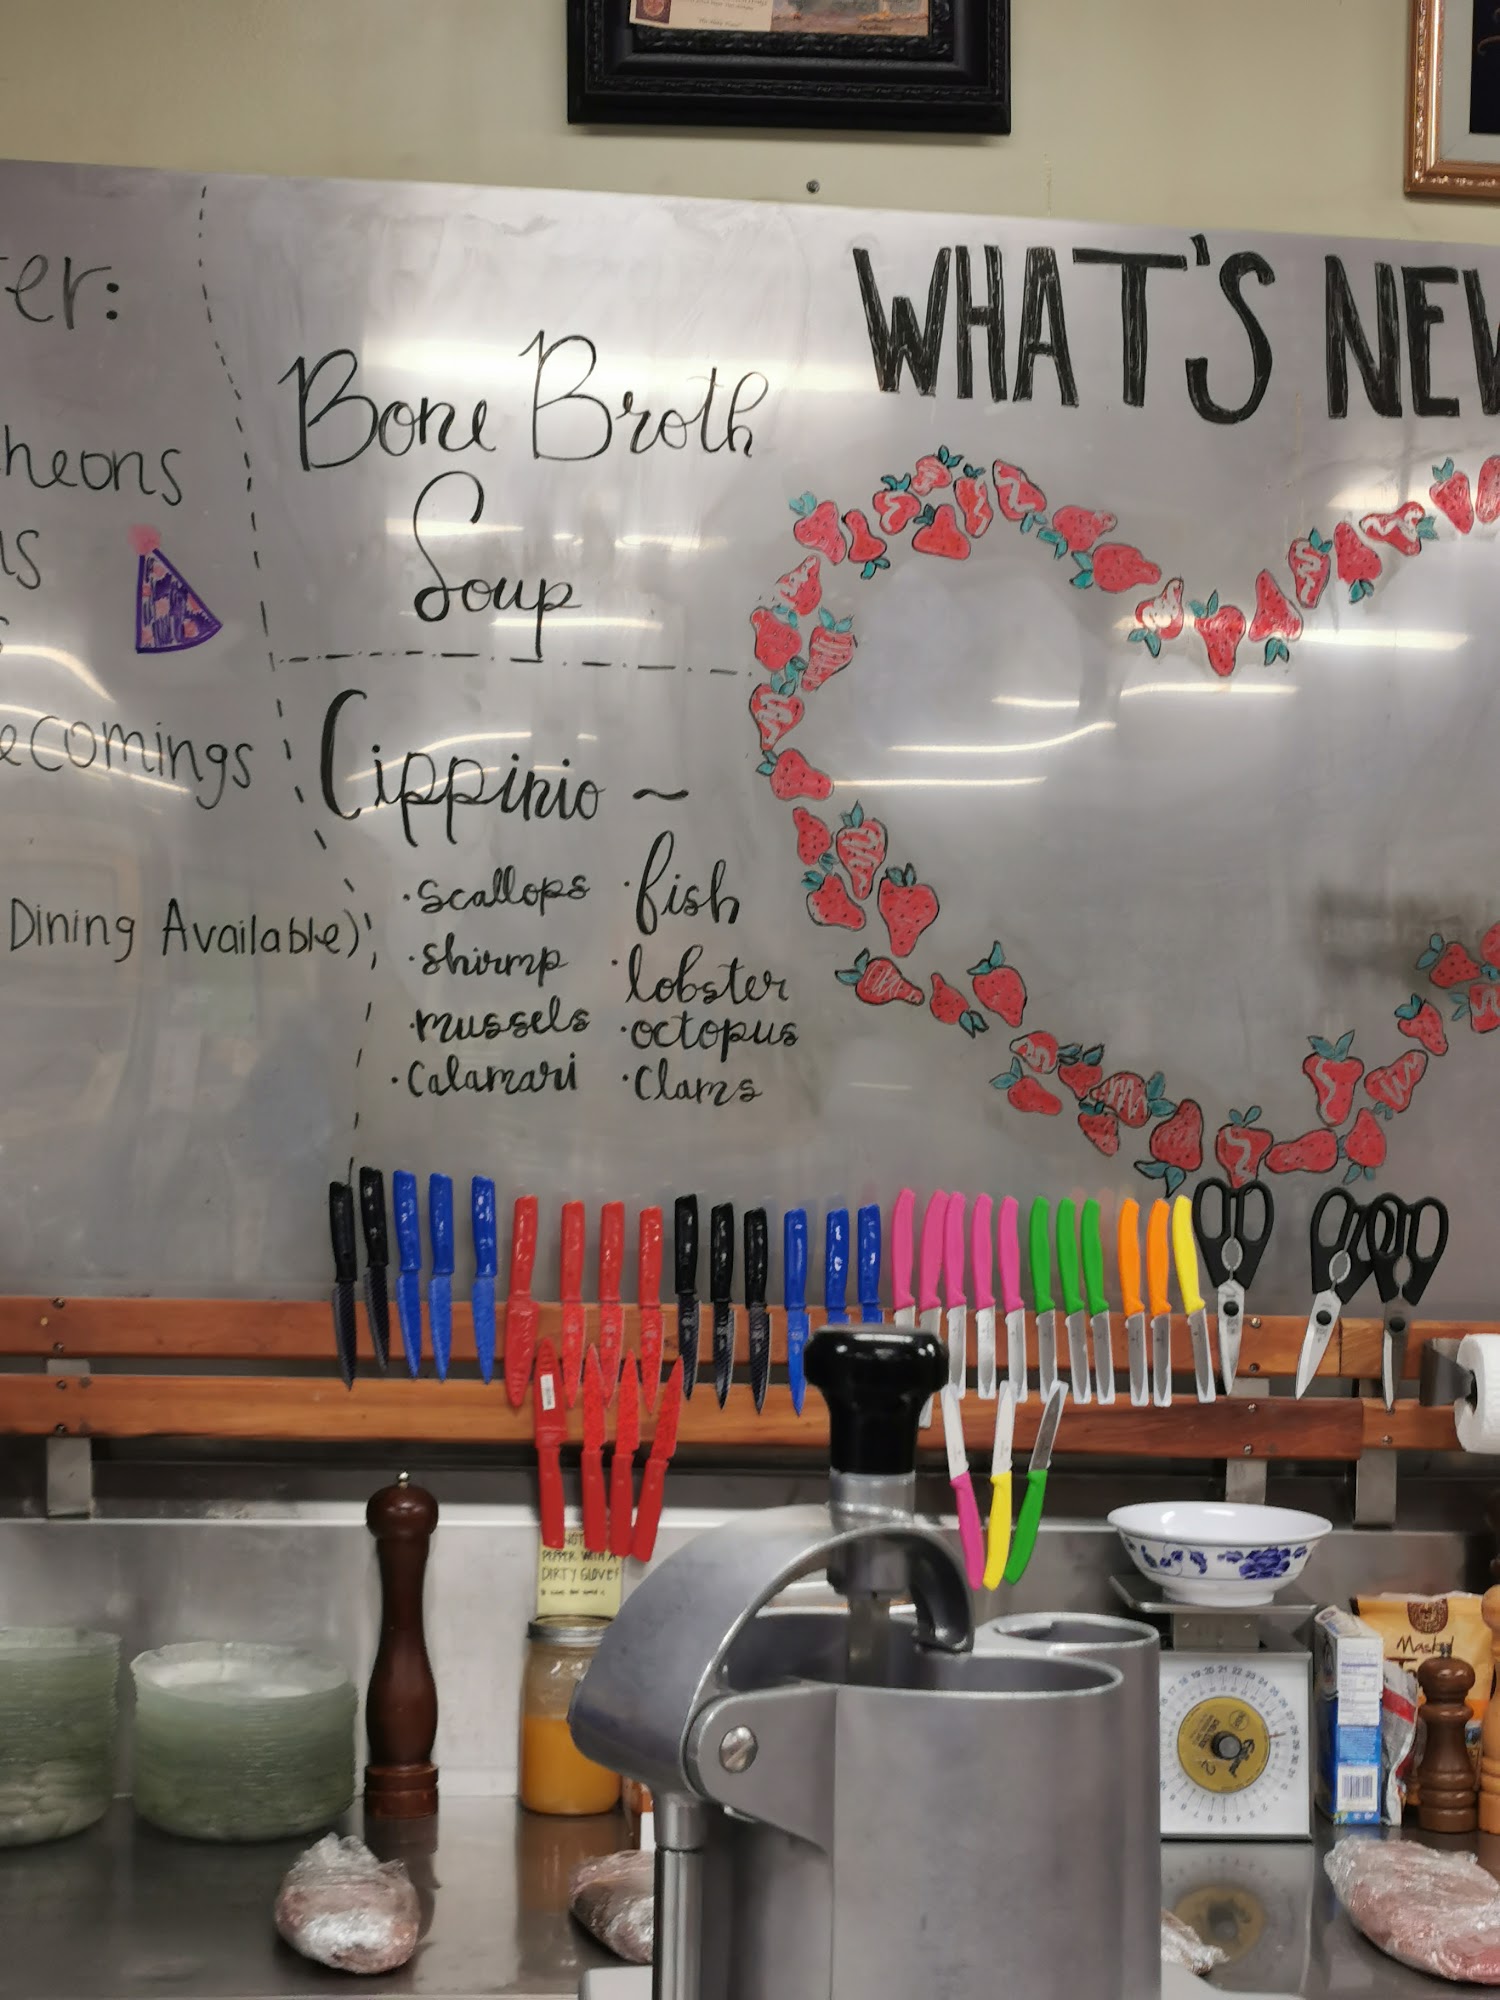 er:
heons
ecomings
Dining Available)
Bone Broth
Soup
Cippinio ~
·scallops
·shirmp
·mussels
·Calamari
·fish
·lobster
·octopus
·Clams
WHAT'S NEW
NOT
PEPPER WITH A
DIRTY GLOVE!